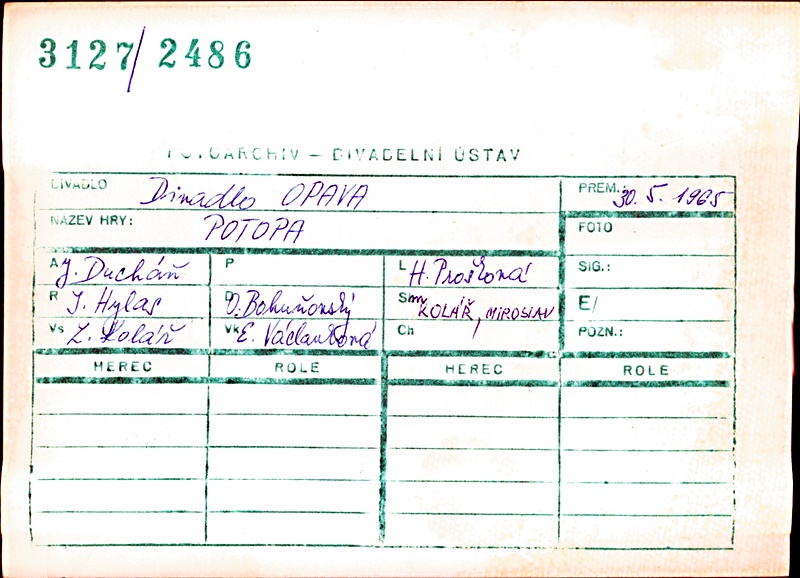 3127/2486
FOTOARCHIV – DIVADELNÍ ÚSTAV
DIVADLO Divadlo OPAVA PREM.: 30. 5. 1965
NÁZEV HRY: POTOPA FOTO
A J. Ducháň P L H. Prošková SIG.:
R J. Hylas D O. Bohuňovský Sm KOLÁŘ, MIROSLAV E/
Vs Z. Kolář Vk E. Václavková Ch POZN.:
HEREC ROLE HEREC ROLE